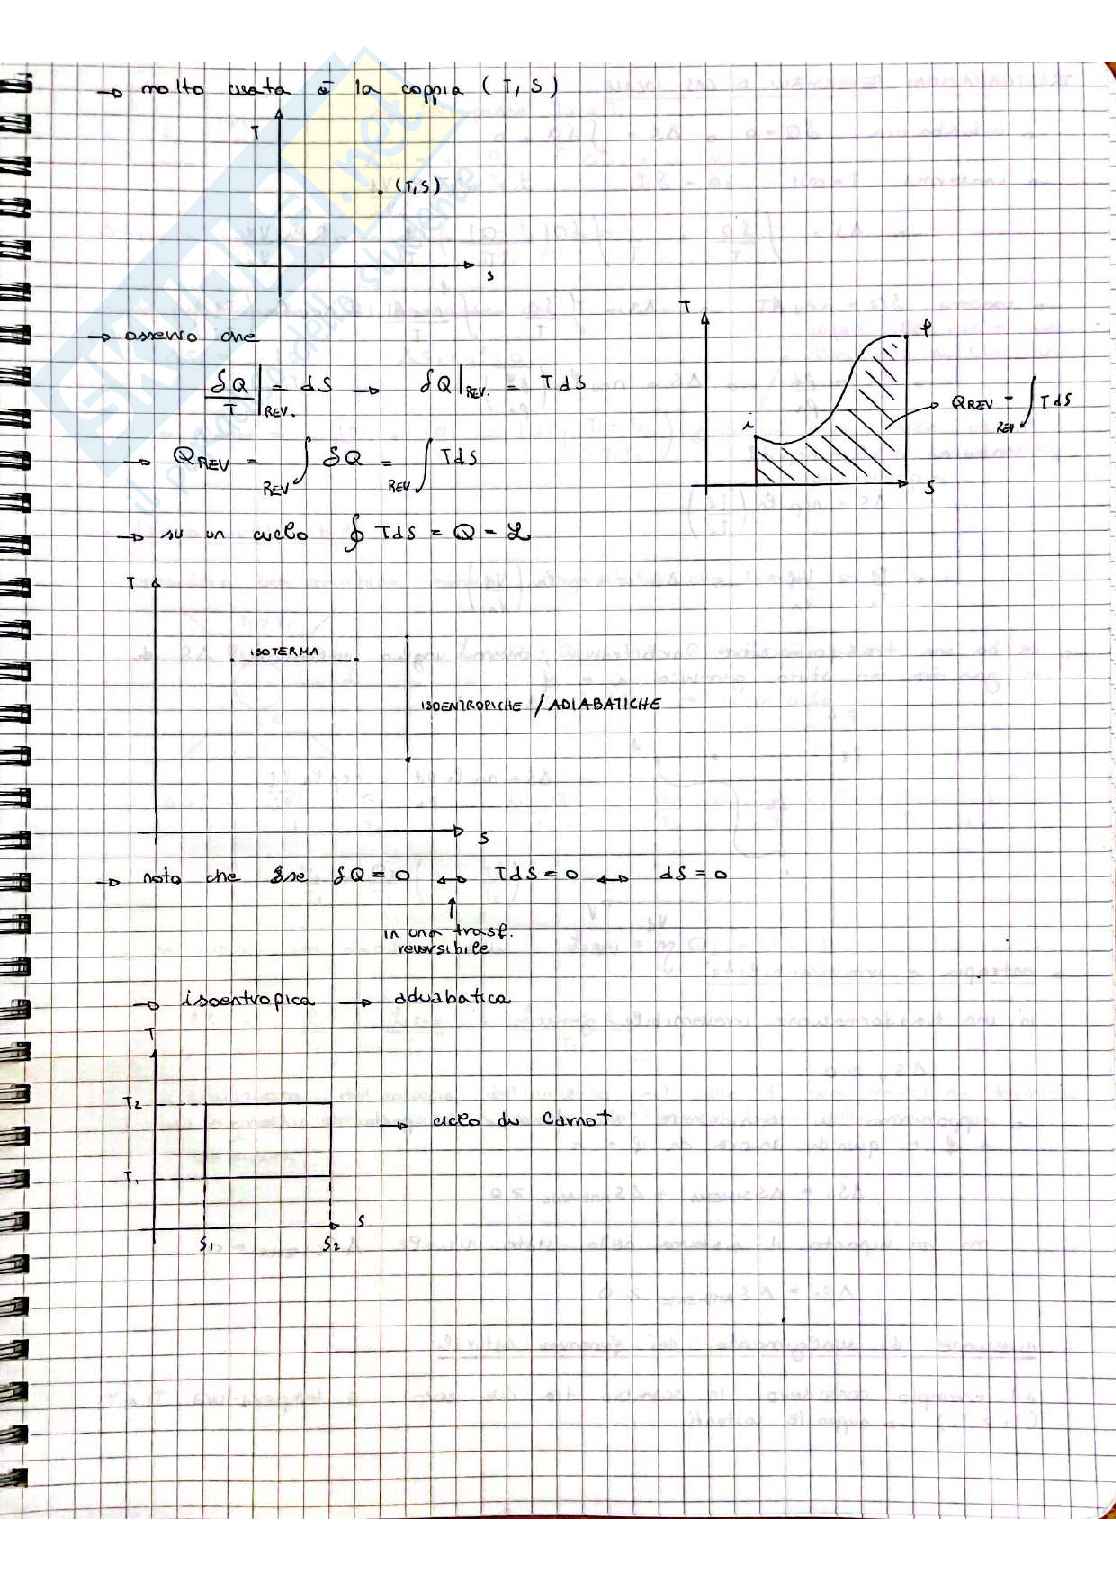 → molto usata è la coppia (T, S)
T
(T,S)
S
→ osservo che
δQ/T |REV. = dS → δQ|REV. = TdS
→ QREV = ∫REV δQ = ∫REV TdS
T
f
i
→ QREV = ∫REV TdS
S
→ su un ciclo ∮ TdS = Q = L
T
ISOTERMA
ISOENTROPICHE / ADIABATICHE
S
→ noto che se δQ = 0 ↔ TdS = 0 ↔ dS = 0
↑
in una trasf.
reversibile
→ isoentropica → adiabatica
T
T2
→ ciclo di Carnot
T1
S
S1 S2